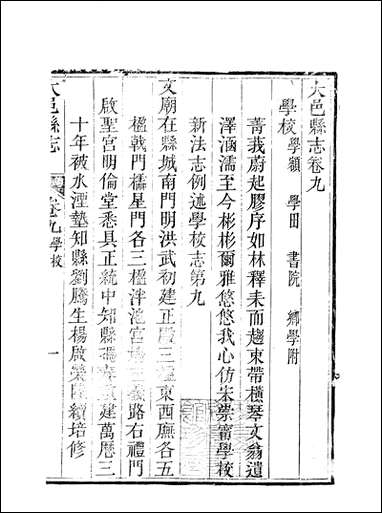 大邑縣志卷九
學校 學額 學田 書院 鄉學附
菁莪蔚起膠序如林釋耒而趨束帶橫琴文翁遺
澤涵濡至今彬彬爾雅悠悠我心仿宋崇甯學校
新法志例述學校志第九
文廟在縣城南門明洪武初建正殿三楹東西廡各五
楹戟門櫺星門各三楹泮池宮牆 義路右禮門
啟聖宮明倫堂悉具正統中知縣 建萬曆三
十年被水湮墊知縣劉騰生楊啟 續培修
大邑縣志 卷九 學校 一